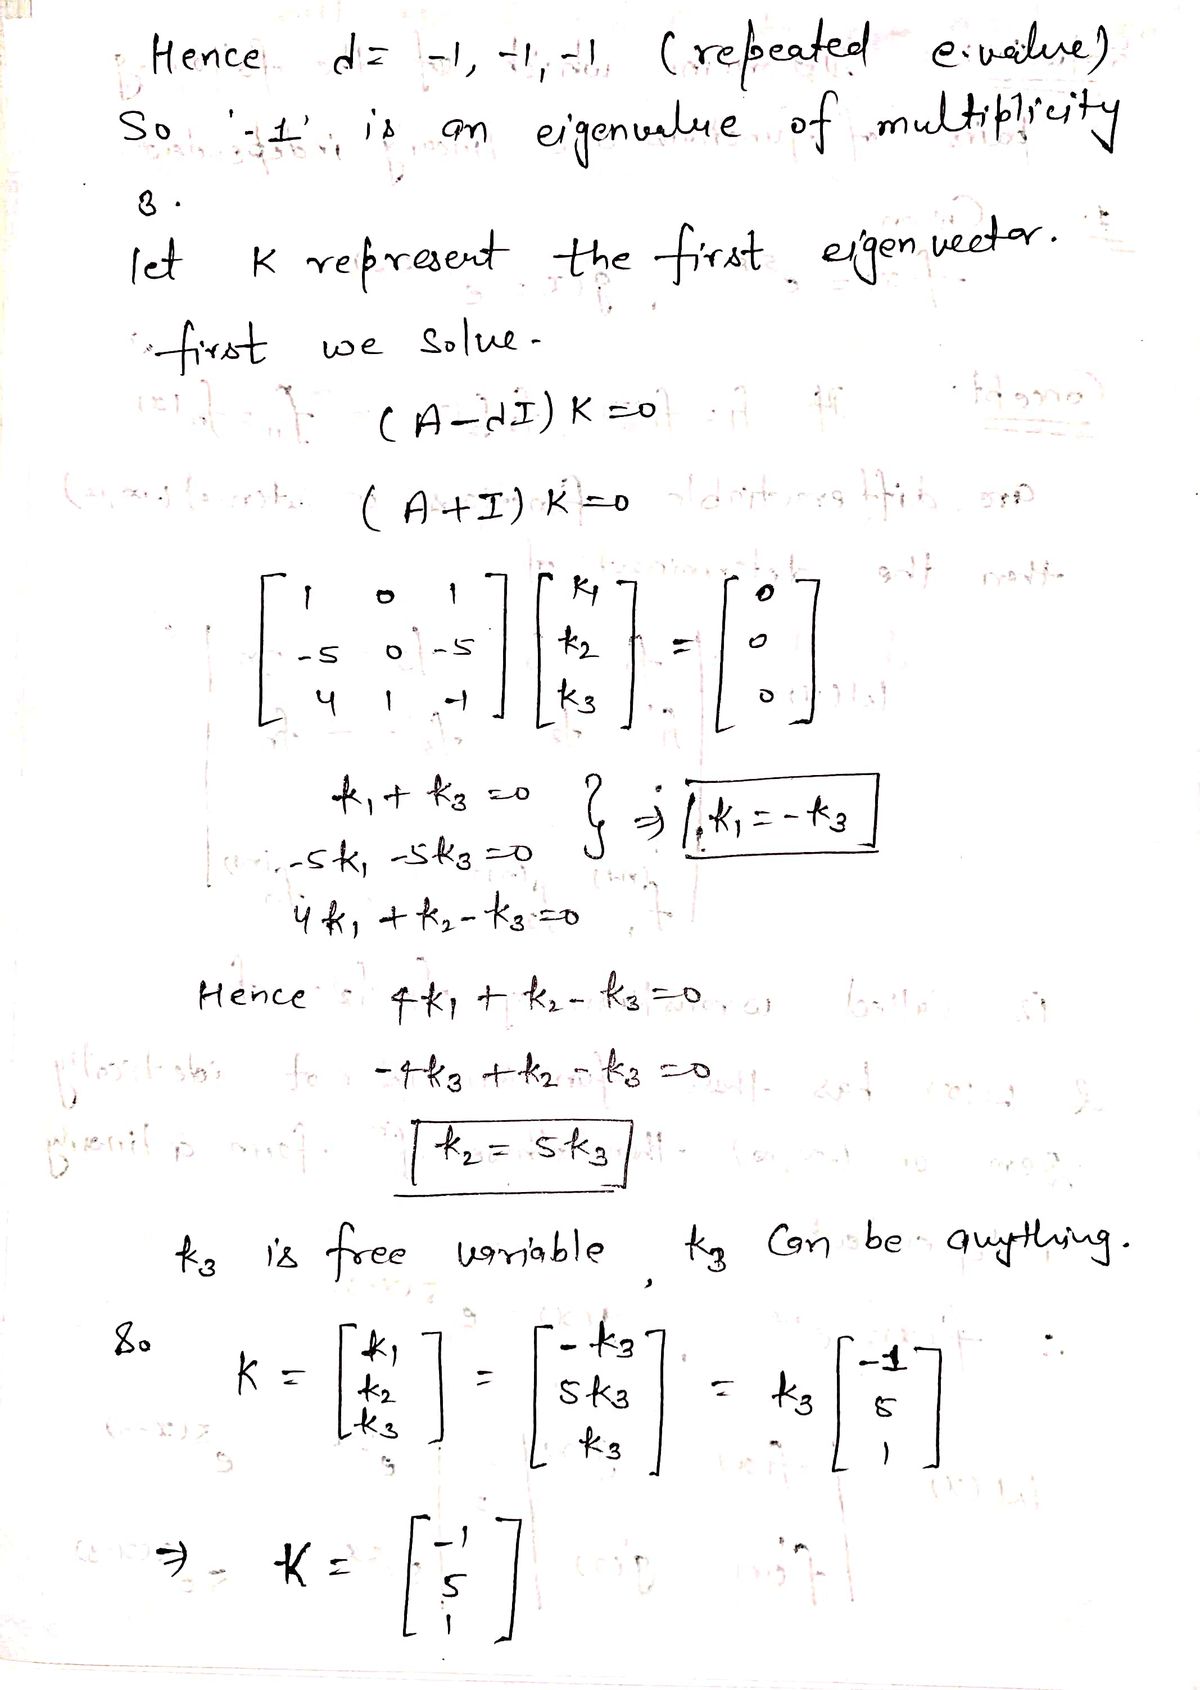 Hence d = -1, -1, -1 (repeated e.value)
So '-1' is an eigenvalue of multiplicity
3.
let K represent the first eigen vector.
first we solve-
(A-dI) K = 0
(A+I) K = 0
[1 0 1; -5 0 -5; 4 1 -1] [k1; k2; k3] = [0; 0; 0]
k1 + k3 = 0 } ⇒ k1 = -k3
-5k1 -5k3 = 0
4k1 + k2 - k3 = 0
Hence 4k1 + k2 - k3 = 0
-4k3 + k2 - k3 = 0
k2 = 5k3
k3 is free variable, k3 can be anything.
So K = [k1; k2; k3] = [-k3; 5k3; k3] = k3 [-1; 5; 1]
⇒ K = [-1; 5; 1]